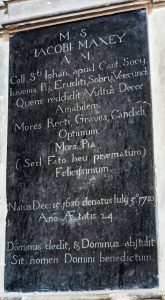 M S
IACOBI MAXEY
A M
Coll. Sti Iohan. apud Cant. Socy
Iuvenis Pij, Eruditi, Sobrij, Verecundi
Quem reddidit Vultus Decor
Amabilem.
Mores Recti, Graves, Candidi,
Optimum.
Mors Pia
(Sed Fato heu præmatura)
Felicissimum.
Natus Dec: 15. 1686 denatus Iuly 5° 1710
Anō Ætatis 24.
Dominus dedit, & Dominus abstulit
Sit nomen Domini benedictum.